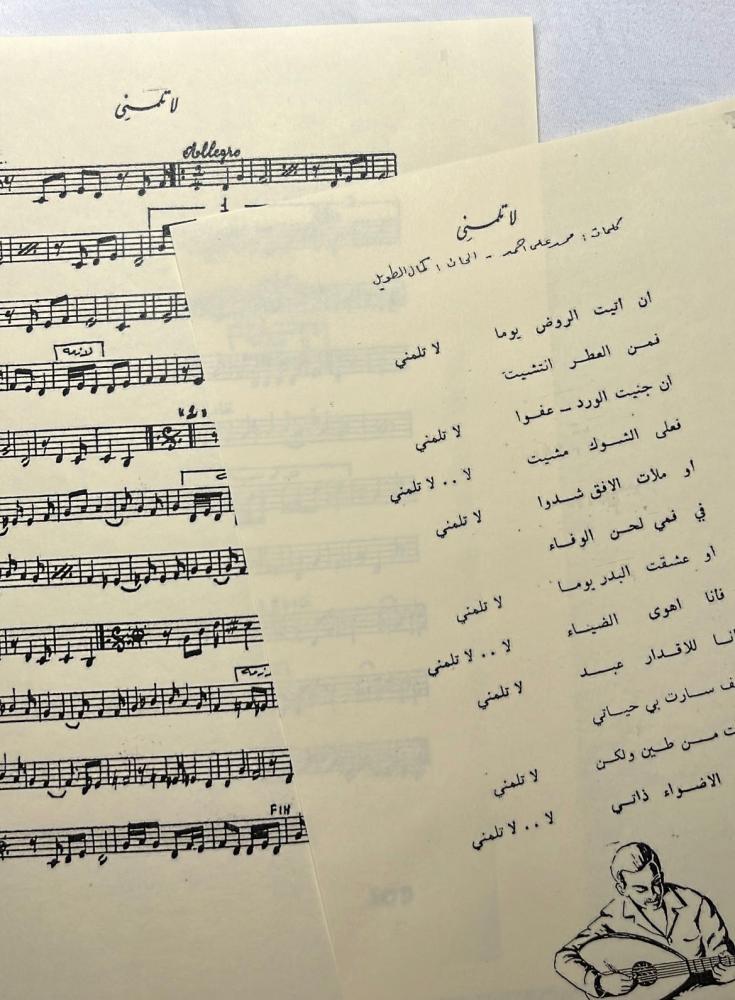 لا تلمني
Allegro
1
لازمه
"2"
FIN
لا تلمني
كلمات : محمد على احمد - الحان : كمال الطويل
ان اتيت الروض يوما لا تلمني
فمن العطر انتشيت
ان جنيت الورد - عفوا لا تلمني
فعلى الشوك مشيت لا .. لا تلمني
او ملأت الافق شدوا لا تلمني
في فمي لحن الوفاء
او عشقت البدر يوما لا تلمني
فأنا اهوى الضياء لا .. لا تلمني
للاقدار عبد لا تلمني
سارت بي حياتي
من طين ولكن لا تلمني
الاضواء ذاتي لا .. لا تلمني